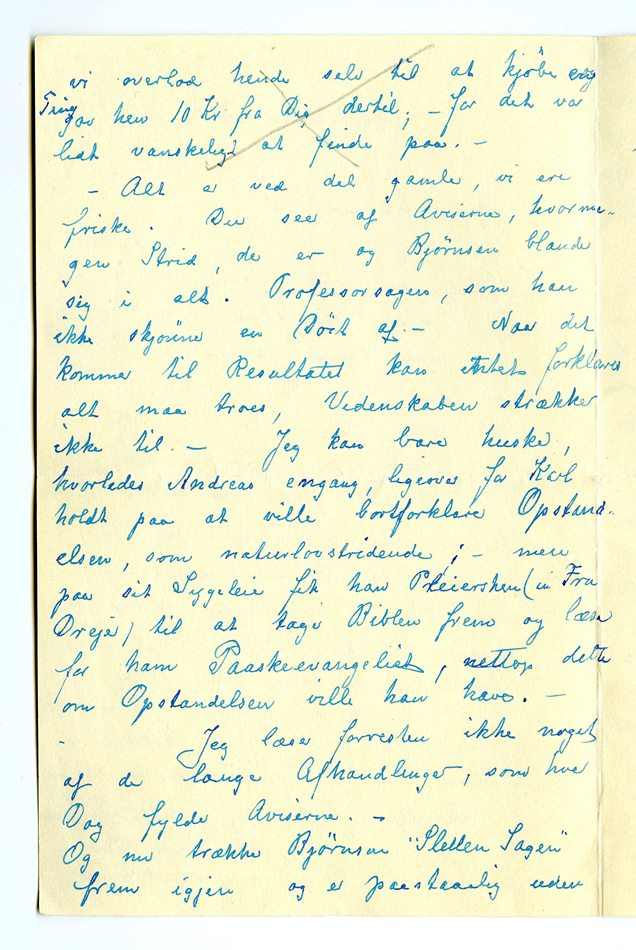 vi overlod hende selv til at kjøbe
Ting
gav hen 10 Kr fra Dig dertil, – for det var
lidt vanskeligt at finde paa. –
– Alt er ved det gamle, vi ere
friske. Du seer af Aviserne, hvorme-
gen Strid, de er og Bjørnson blande
sig i alt. Professorsagen, som han
ikke skjønner en Døit af. – Naar det
kommer til Resultatet kan Intet forklares
alt maa troes, Videnskaben strækker
ikke til. – Jeg kan bare huske,
hvorledes Andreas engang, ligeover for Karl
holdt paa at ville bortforklare Opstand-
elsen, som naturlovstridende; – men
paa sit Sygeleie fik han Pleiersken (en Fru
Dreje) til at tage Biblen frem og læse
for ham Paaskeevangeliet, nettop dette
om Opstandelsen ville han have. –
- Jeg læser forresten ikke noget
af de lange Afhandlinger, som hver
Dag fylde Aviserne. –
Og nu trække Bjørnson "Sletten Sagen"
frem igjen og er paastaaelig uden